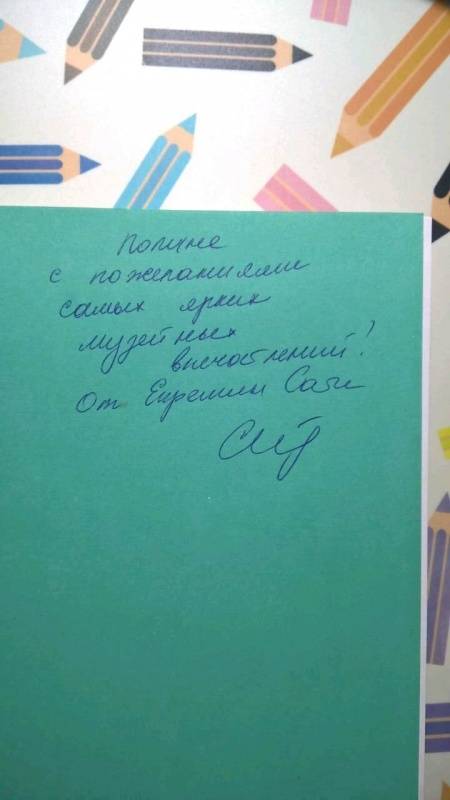 Полине
с пожеланиями
самых ярких
музейных
впечатлений!
От Спирелли Сати